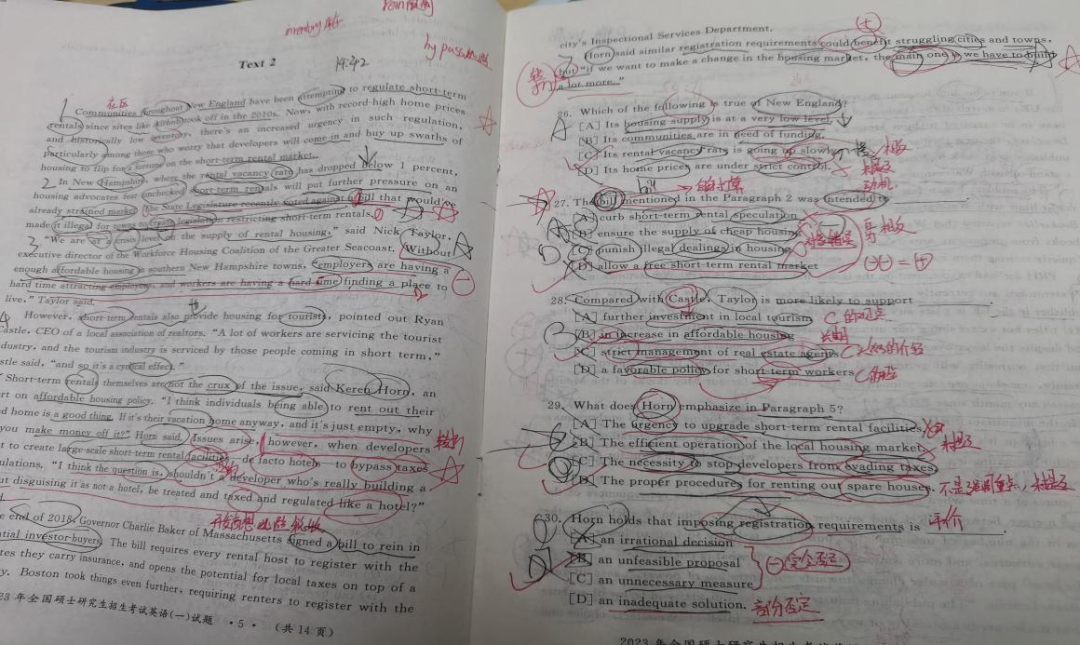 Text 2
19:42
inventory
by pass
社区
Communities throughout New England have been attempting to regulate short-term
rentals since sites like Airbnb took off in the 2010s. Now, with record-high home prices
and historically low inventory, there's an increased urgency in such regulation,
particularly among those who worry that developers will come in and buy up swaths of
housing to flip for a fortune on the short-term rental market.
2 In New Hampshire, where the rental vacancy rate has dropped below 1 percent,
housing advocates fear unchecked short-term rentals will put further pressure on an
already strained market. The State Legislature recently voted against a bill that would've
made it illegal for towns to create legislation restricting short-term rentals.
3 "We are at a crisis level on the supply of rental housing," said Nick Taylor,
executive director of the Workforce Housing Coalition of the Greater Seacoast. Without
enough affordable housing in southern New Hampshire towns, "employers are having a
hard time attracting employees, and workers are having a hard time finding a place to
live," Taylor said.
However, short-term rentals also provide housing for tourists, pointed out Ryan
Castle, CEO of a local association of realtors. "A lot of workers are servicing the tourist
industry, and the tourism industry is serviced by those people coming in short term,"
stle said, "and so it's a cyclical effect."
Short-term rentals themselves are not the crux of the issue, said Keren Horn, an
rt on affordable housing policy. "I think individuals being able to rent out their
d home is a good thing. If it's their vacation home anyway, and it's just empty, why
you make money off it?" Horn said. Issues arise, however, when developers
t to create large-scale short-term rental facilities—de facto hotels—to bypass taxes
ulations. "I think the question is, shouldn't a developer who's really building a
ut disguising it as not a hotel, be treated and taxed and regulated like a hotel?"
d.
e end of 2018, Governor Charlie Baker of Massachusetts signed a bill to rein in
ntial investor-buyers. The bill requires every rental host to register with the
tes they carry insurance, and opens the potential for local taxes on top of a
y. Boston took things even further, requiring renters to register with the
23 年全国硕士研究生招生考试英语(一)试题 · 5 · (共 14 页)
city's Inspectional Services Department.
Horn said similar registration requirements could benefit struggling cities and towns,
but "if we want to make a change in the housing market, the main one is we have to build
a lot more."
26. Which of the following is true of New England?
[A] Its housing supply is at a very low level.
[B] Its communities are in need of funding.
[C] Its rental vacancy rate is going up slowly.
[D] Its home prices are under strict control.
27. The bill mentioned in the Paragraph 2 was intended to ______.
[A] curb short-term rental speculation
[B] ensure the supply of cheap housing
[C] punish illegal dealings in housing
[D] allow a free short-term rental market
28. Compared with Castle, Taylor is more likely to support ______.
[A] further investment in local tourism
[B] an increase in affordable housing
[C] strict management of real estate agents
[D] a favorable policy for short-term workers
29. What does Horn emphasize in Paragraph 5?
[A] The urgency to upgrade short-term rental facilities.
[B] The efficient operation of the local housing market.
[C] The necessity to stop developers from evading taxes.
[D] The proper procedures for renting out spare houses.
30. Horn holds that imposing registration requirements is ______.
评价
[A] an irrational decision
[B] an unfeasible proposal
[C] an unnecessary measure
完全否定
[D] an inadequate solution.
部分否定